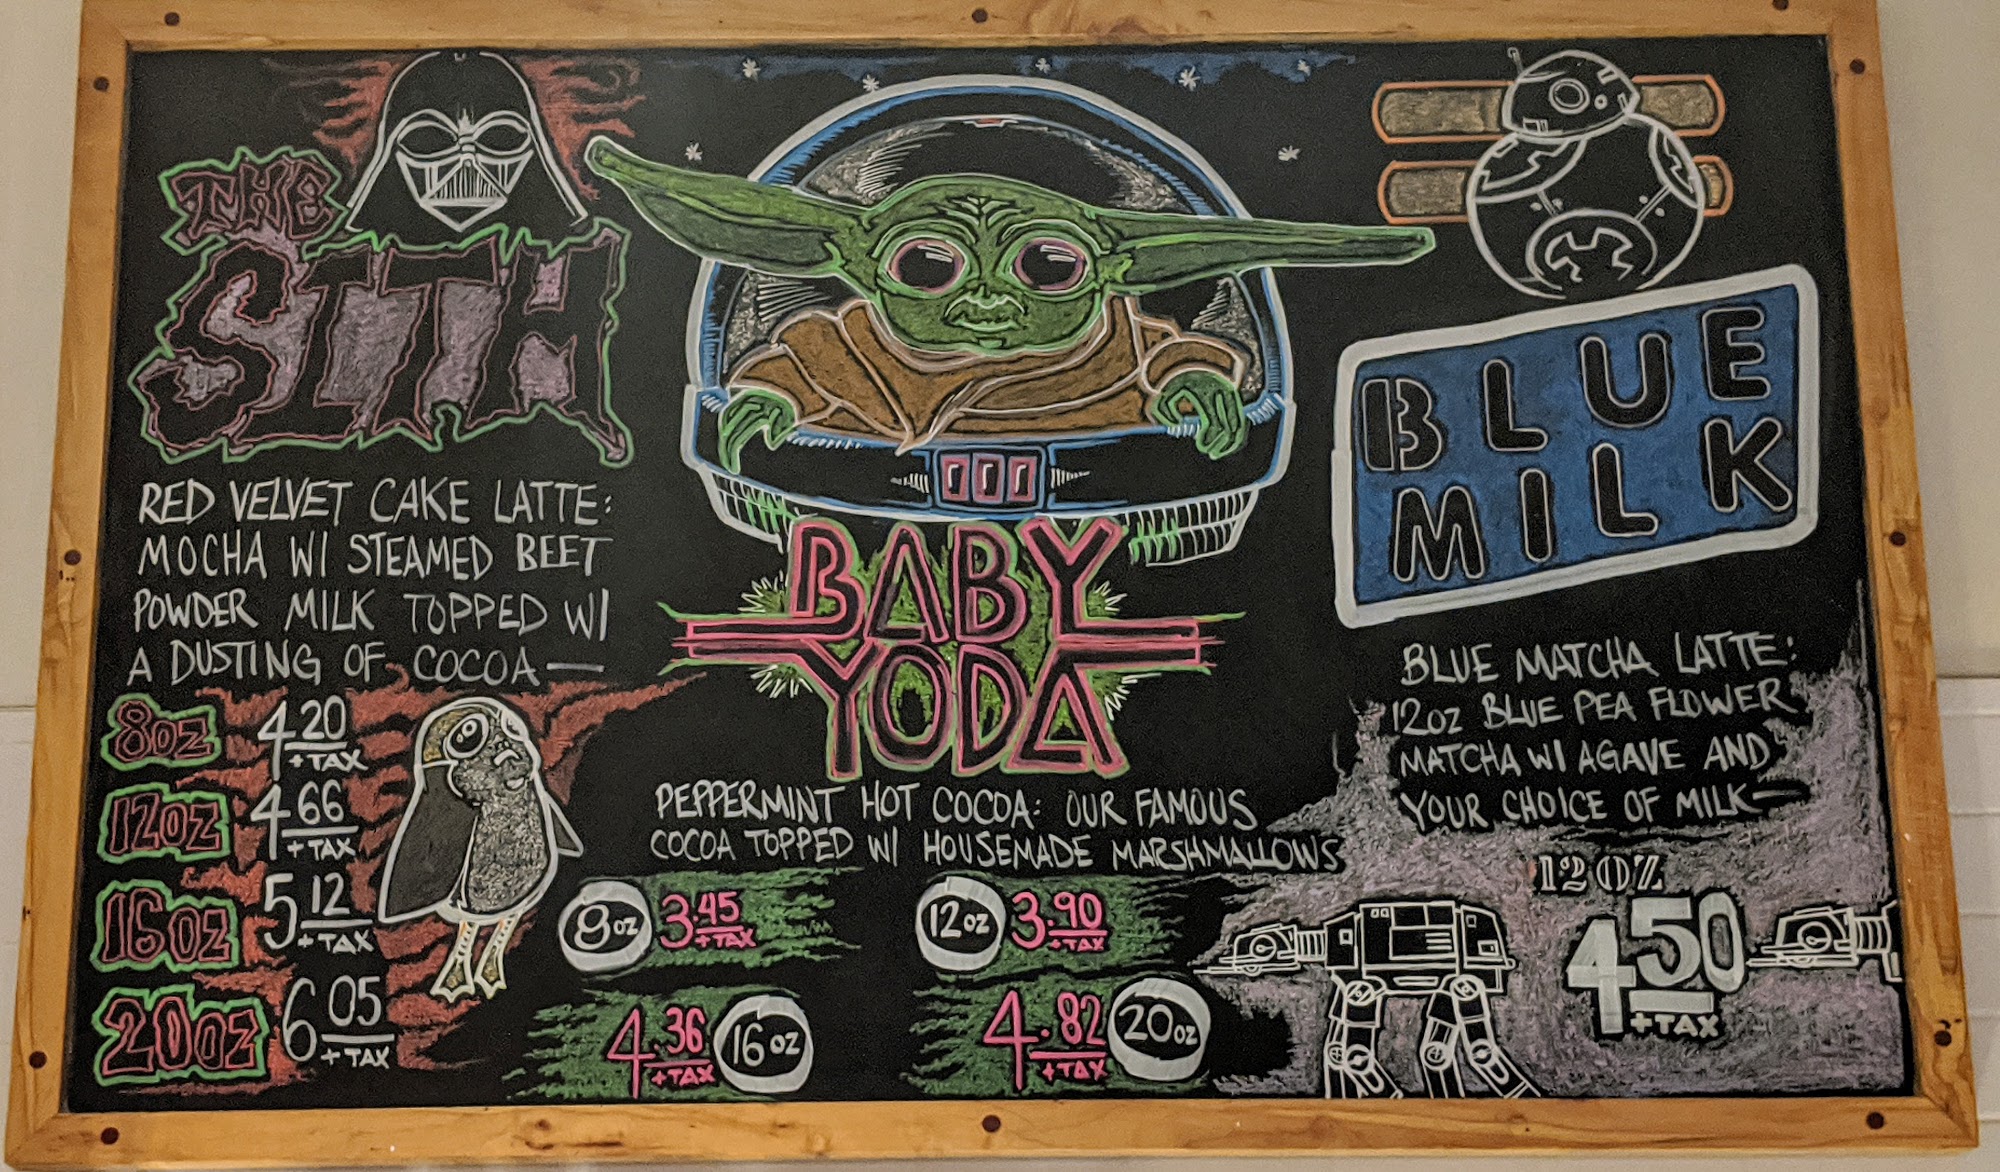 THE
SITH
RED VELVET CAKE LATTE:
MOCHA W/ STEAMED BEET
POWDER MILK TOPPED W/
A DUSTING OF COCOA—
8oz 4.20 + TAX
12oz 4.66 + TAX
16oz 5.12 + TAX
20oz 6.05 + TAX
BABY
YODA
PEPPERMINT HOT COCOA: OUR FAMOUS
COCOA TOPPED W/ HOUSEMADE MARSHMALLOWS
8oz 3.45 + TAX
12oz 3.90 + TAX
4.36 + TAX 16oz
4.82 + TAX 20oz
BLUE
MILK
BLUE MATCHA LATTE:
12oz BLUE PEA FLOWER
MATCHA W/ AGAVE AND
YOUR CHOICE OF MILK—
12OZ
4.50
+ TAX